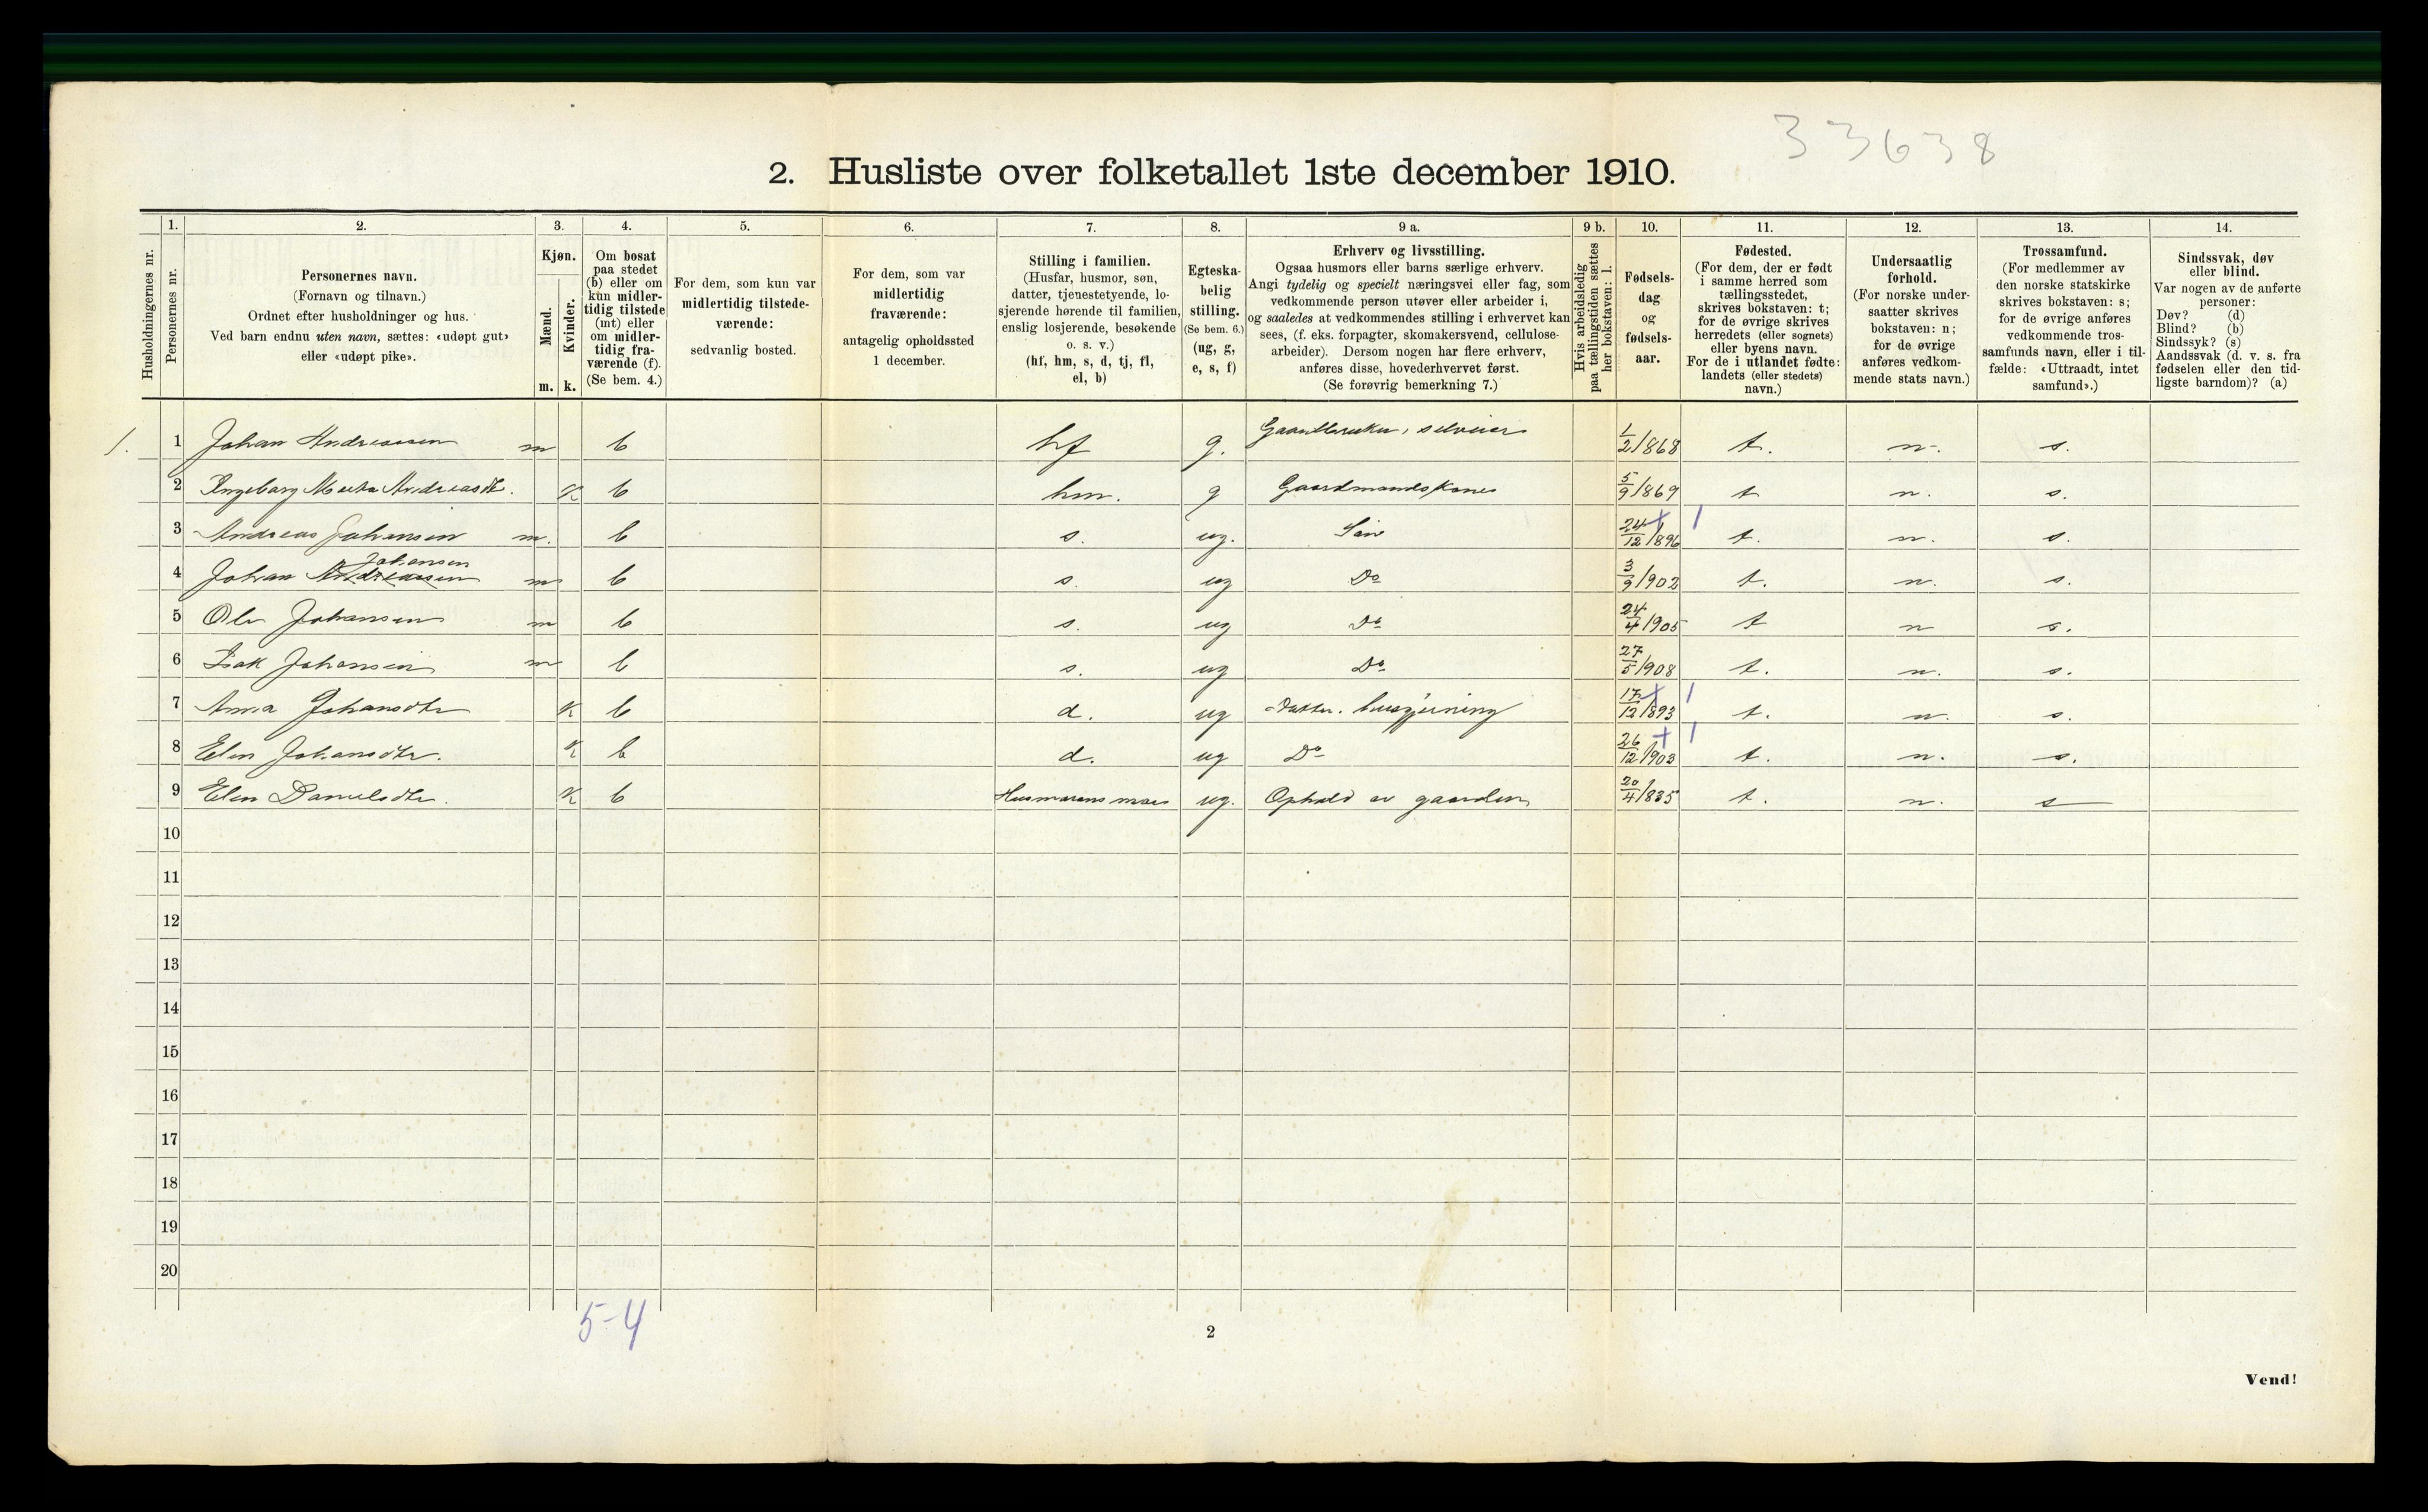 33638
2. Husliste over folketallet 1ste december 1910.
Husholdningernes nr.
1. Personernes nr.
2. Personernes navn.
(Fornavn og tilnavn.)
Ordnet efter husholdninger og hus.
Ved barn endnu uten navn, sættes: «udøpt gut»
eller «udøpt pike».
3. Kjøn.
Mænd. m.
Kvinder. k.
4. Om bosat
paa stedet
(b) eller om
kun midler-
tidig tilstede
(mt) eller
om midler-
tidig fra-
værende (f).
(Se bem. 4.)
5. For dem, som kun var
midlertidig tilstede-
værende:
sedvanlig bosted.
6. For dem, som var
midlertidig
fraværende:
antagelig opholdssted
1 december.
7. Stilling i familien.
(Husfar, husmor, søn,
datter, tjenestetyende, lo-
sjerende hørende til familien,
enslig losjerende, besøkende
o. s. v.)
(hf, hm, s, d, tj, fl,
el, b)
8. Egteska-
belig
stilling.
(Se bem. 6.)
(ug, g,
e, s, f)
9 a. Erhverv og livsstilling.
Ogsaa husmors eller barns særlige erhverv.
Angi tydelig og specielt næringsvei eller fag, som
vedkommende person utøver eller arbeider i,
og saaledes at vedkommendes stilling i erhvervet kan
sees, (f. eks. forpagter, skomakersvend, cellulose-
arbeider). Dersom nogen har flere erhverv,
anføres disse, hovederhvervet først.
(Se forøvrig bemerkning 7.)
9 b. Hvis arbeidsledig
paa tællingstiden sættes
her bokstaven: l.
10. Fødsels-
dag
og
fødsels-
aar.
11. Fødested.
(For dem, der er født
i samme herred som
tællingsstedet,
skrives bokstaven: t;
for de øvrige skrives
herredets (eller sognets)
eller byens navn.
For de i utlandet fødte:
landets (eller stedets)
navn.)
12. Undersaatlig
forhold.
(For norske under-
saatter skrives
bokstaven: n;
for de øvrige
anføres vedkom-
mende stats navn.)
13. Trossamfund.
(For medlemmer av
den norske statskirke
skrives bokstaven: s;
for de øvrige anføres
vedkommende tros-
samfunds navn, eller i til-
fælde: «Uttraadt, intet
samfund».)
14. Sindssvak, døv
eller blind.
Var nogen av de anførte
personer:
Døv? (d)
Blind? (b)
Sindssyk? (s)
Aandssvak (d. v. s. fra
fødselen eller den tid-
ligste barndom)? (a)
1. 1 Johan Andreassen m b hf g. Gaardbruker, selveier 1/2/868 t. n. s.
2 Ingeborg Andreasdtr. K b hm. g Gaardmandskone 5/9/869 t n. s.
3 Andreas Johansen m. b s. ug. Søn 24/12/896 t. n. s.
4 Johan Andreassen Johansen m b s. ug Do 3/9/902 t. n. s.
5 Ole Johansen m b s. ug Do 24/4/905 t n s.
6 Isak Johansen m b s. ug Do 27/5/908 t. n. s.
7 Anna Johansdtr K b d. ug Datter. husgjerning 17/12/893 t. n. s.
8 Elen Johansdtr. K b d. ug Do 26/12/903 t. n. s.
9 Elen Danielsdtr. K b Husmorens mor ug. Ophold av gaarden 20/4/835 t. n. s
10
11
12
13
14
15
16
17
18
19
20
5-4
2
Vend!